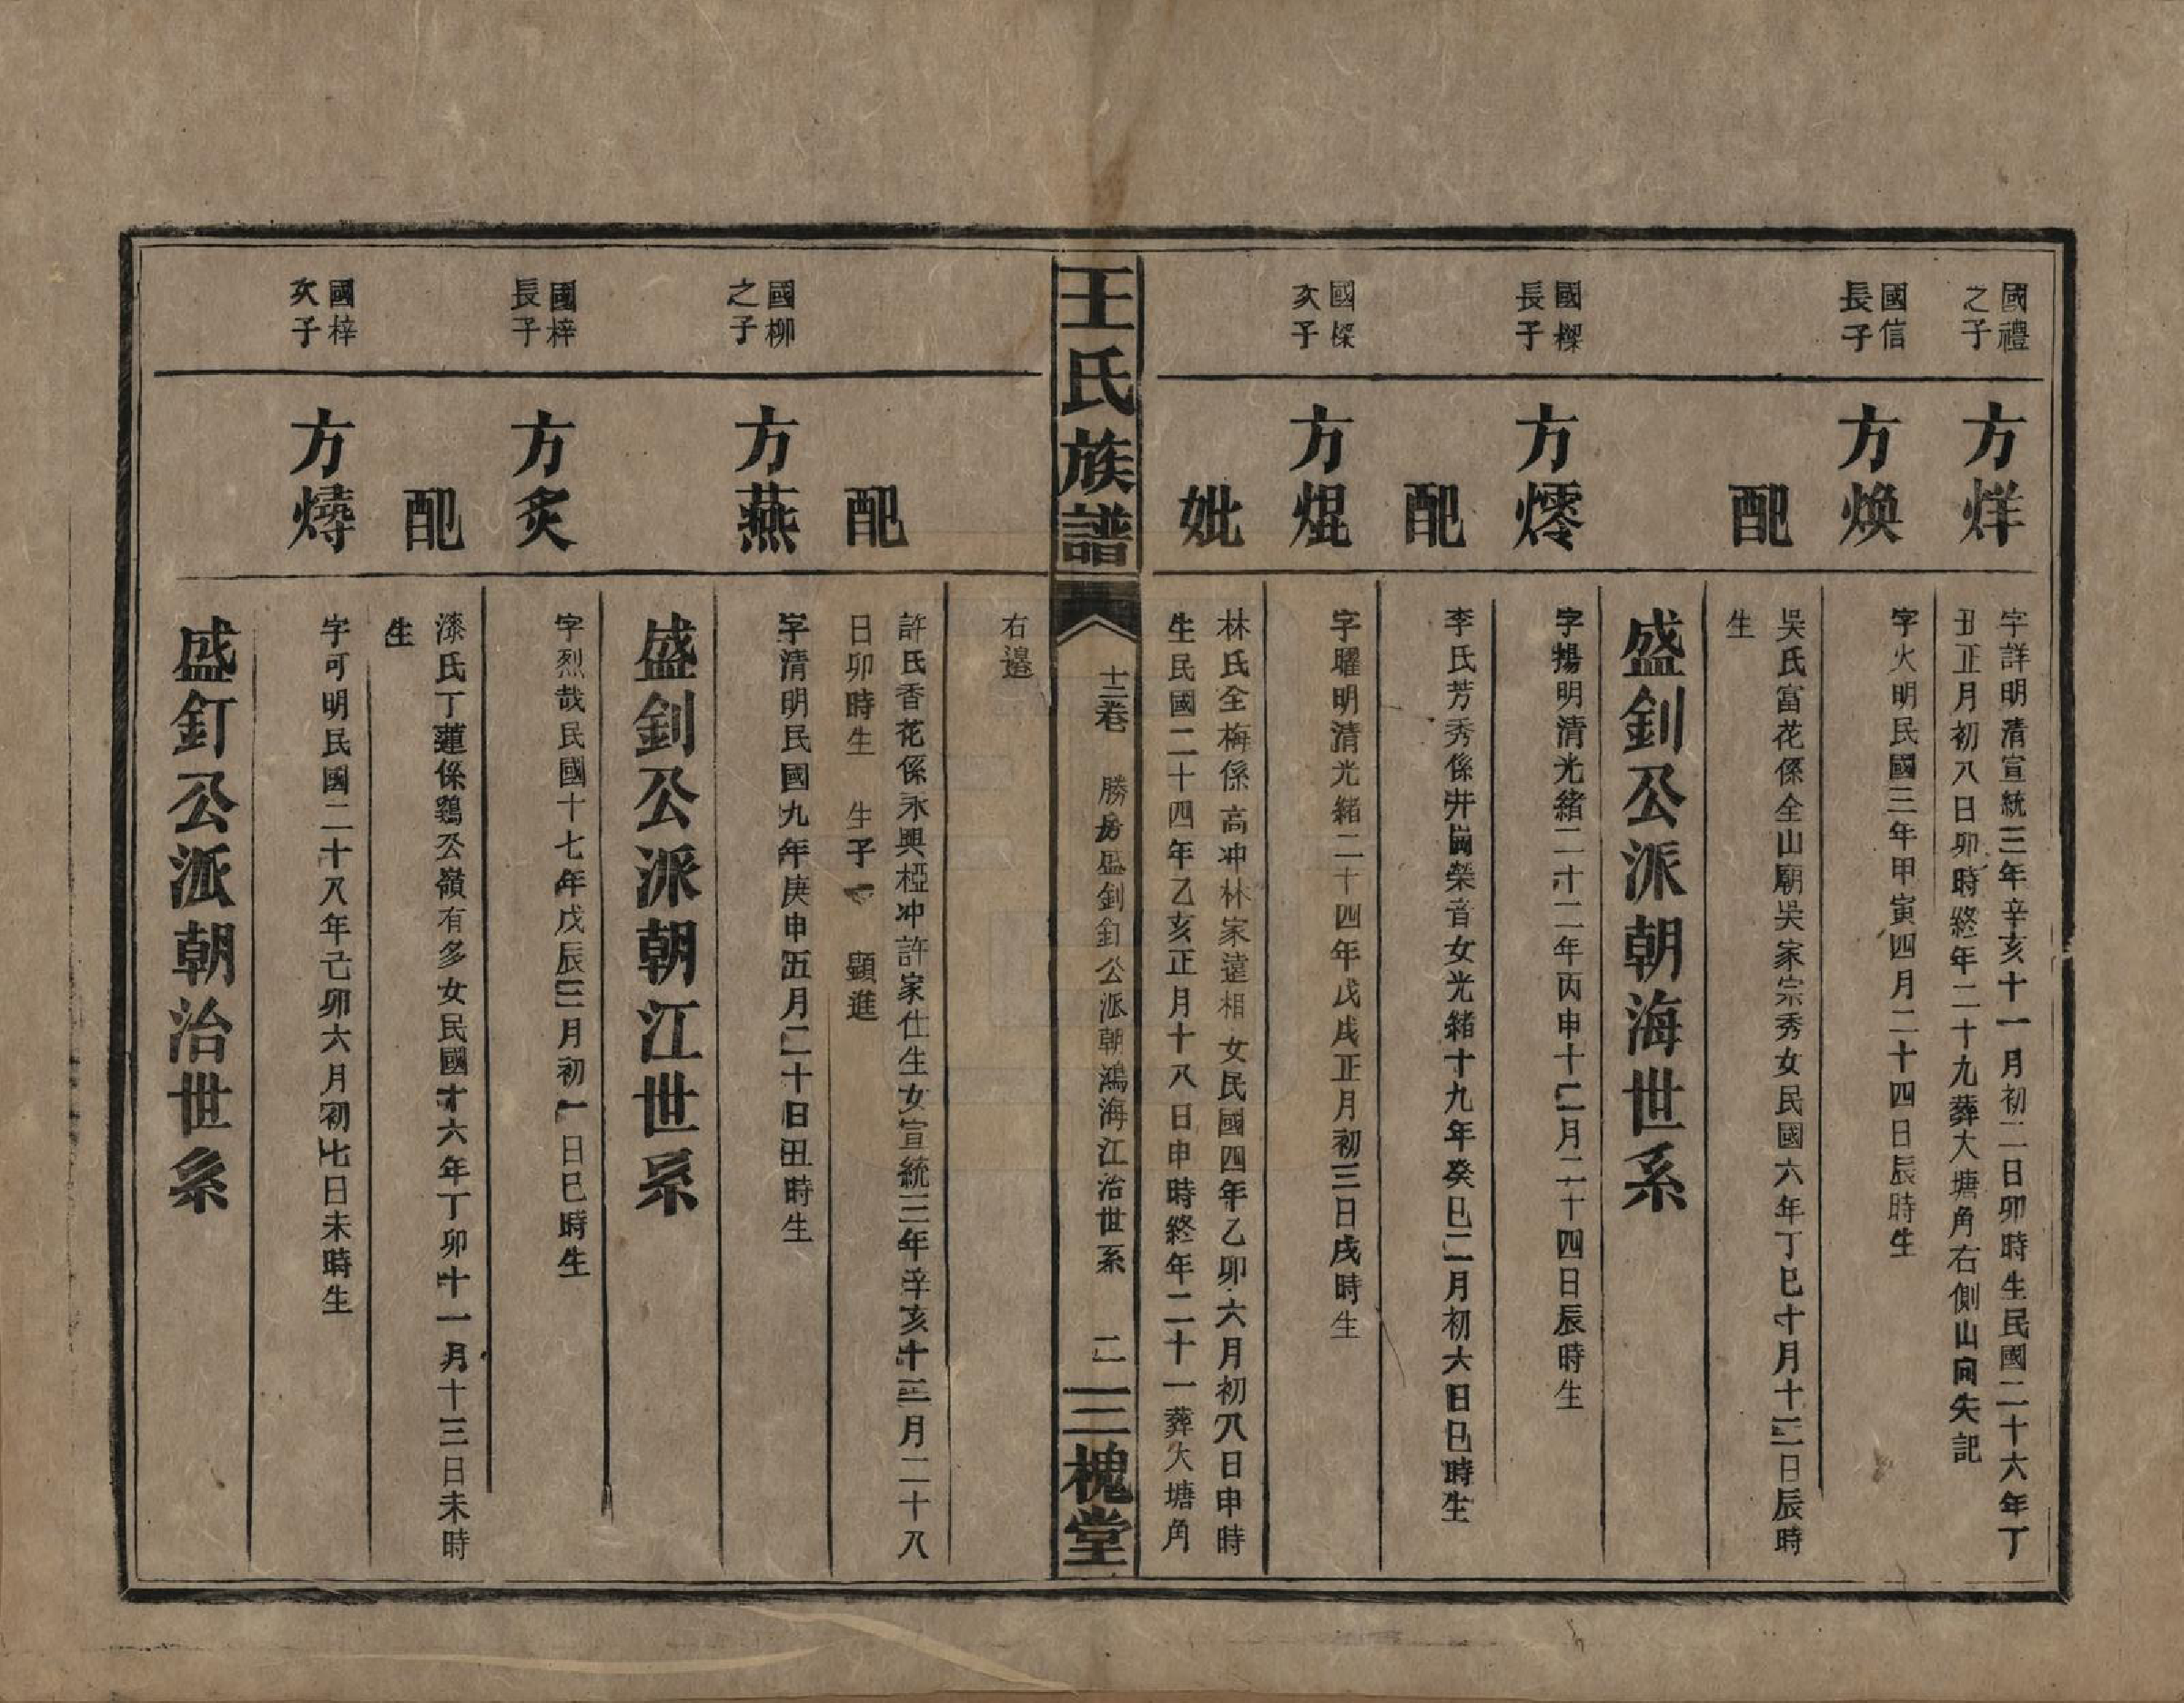 國禮
之子
方烊
字詳明清宣統三年辛亥十一月初二日卯時生民國二十六年丁
丑正月初八日卯時終年二十九葬大塘角右側山向失記
國信
長子
方煥
字火明民國三年甲寅四月二十四日辰時生
配
吳氏富花係全山廟吳家宗秀女民國六年丁巳十月十三日辰時
生
盛釗公派朝海世系
國樑
長子
方燯
字揚明清光緒二十二年丙申十二月二十四日辰時生
配
李氏芳秀係井崗榮音女光緒十九年癸巳二月初六日巳時生
國樑
次子
方焜
字曜明清光緒二十四年戊戌正月初三日戌時生
妣
林氏全梅係高冲林家遠相女民國四年乙卯六月初八日申時
生民國二十四年乙亥正月十八日申時終年二十一葬大塘角
王氏族譜
十三卷
勝房盛釗釘公派朝鴻海江治世系
二
三槐堂
右邉
配
許氏香花係永興椏冲許家仕生女宣統三年辛亥十二月二十八
日卯時生 生子一 顕進
國柳
之子
方燕
字清明民國九年庚申五月二十日丑時生
盛釗公派朝江世系
國梓
長子
方炙
字烈哉民國十七年戊辰三月初一日巳時生
配
漆氏丁蓮係鷄公嶺有多女民國十六年丁卯十一月十三日未時
生
國梓
次子
方燽
字可明民國二十八年己卯六月初七日未時生
盛釘公派朝治世系